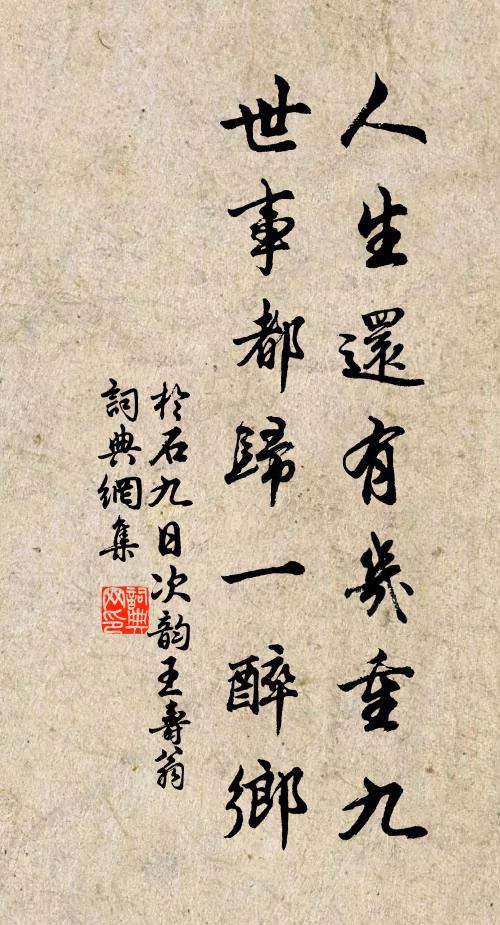 人生還有幾重九
世事都歸一醉鄉
於石九日次韵王壽翁
詞典網集
詞典網印